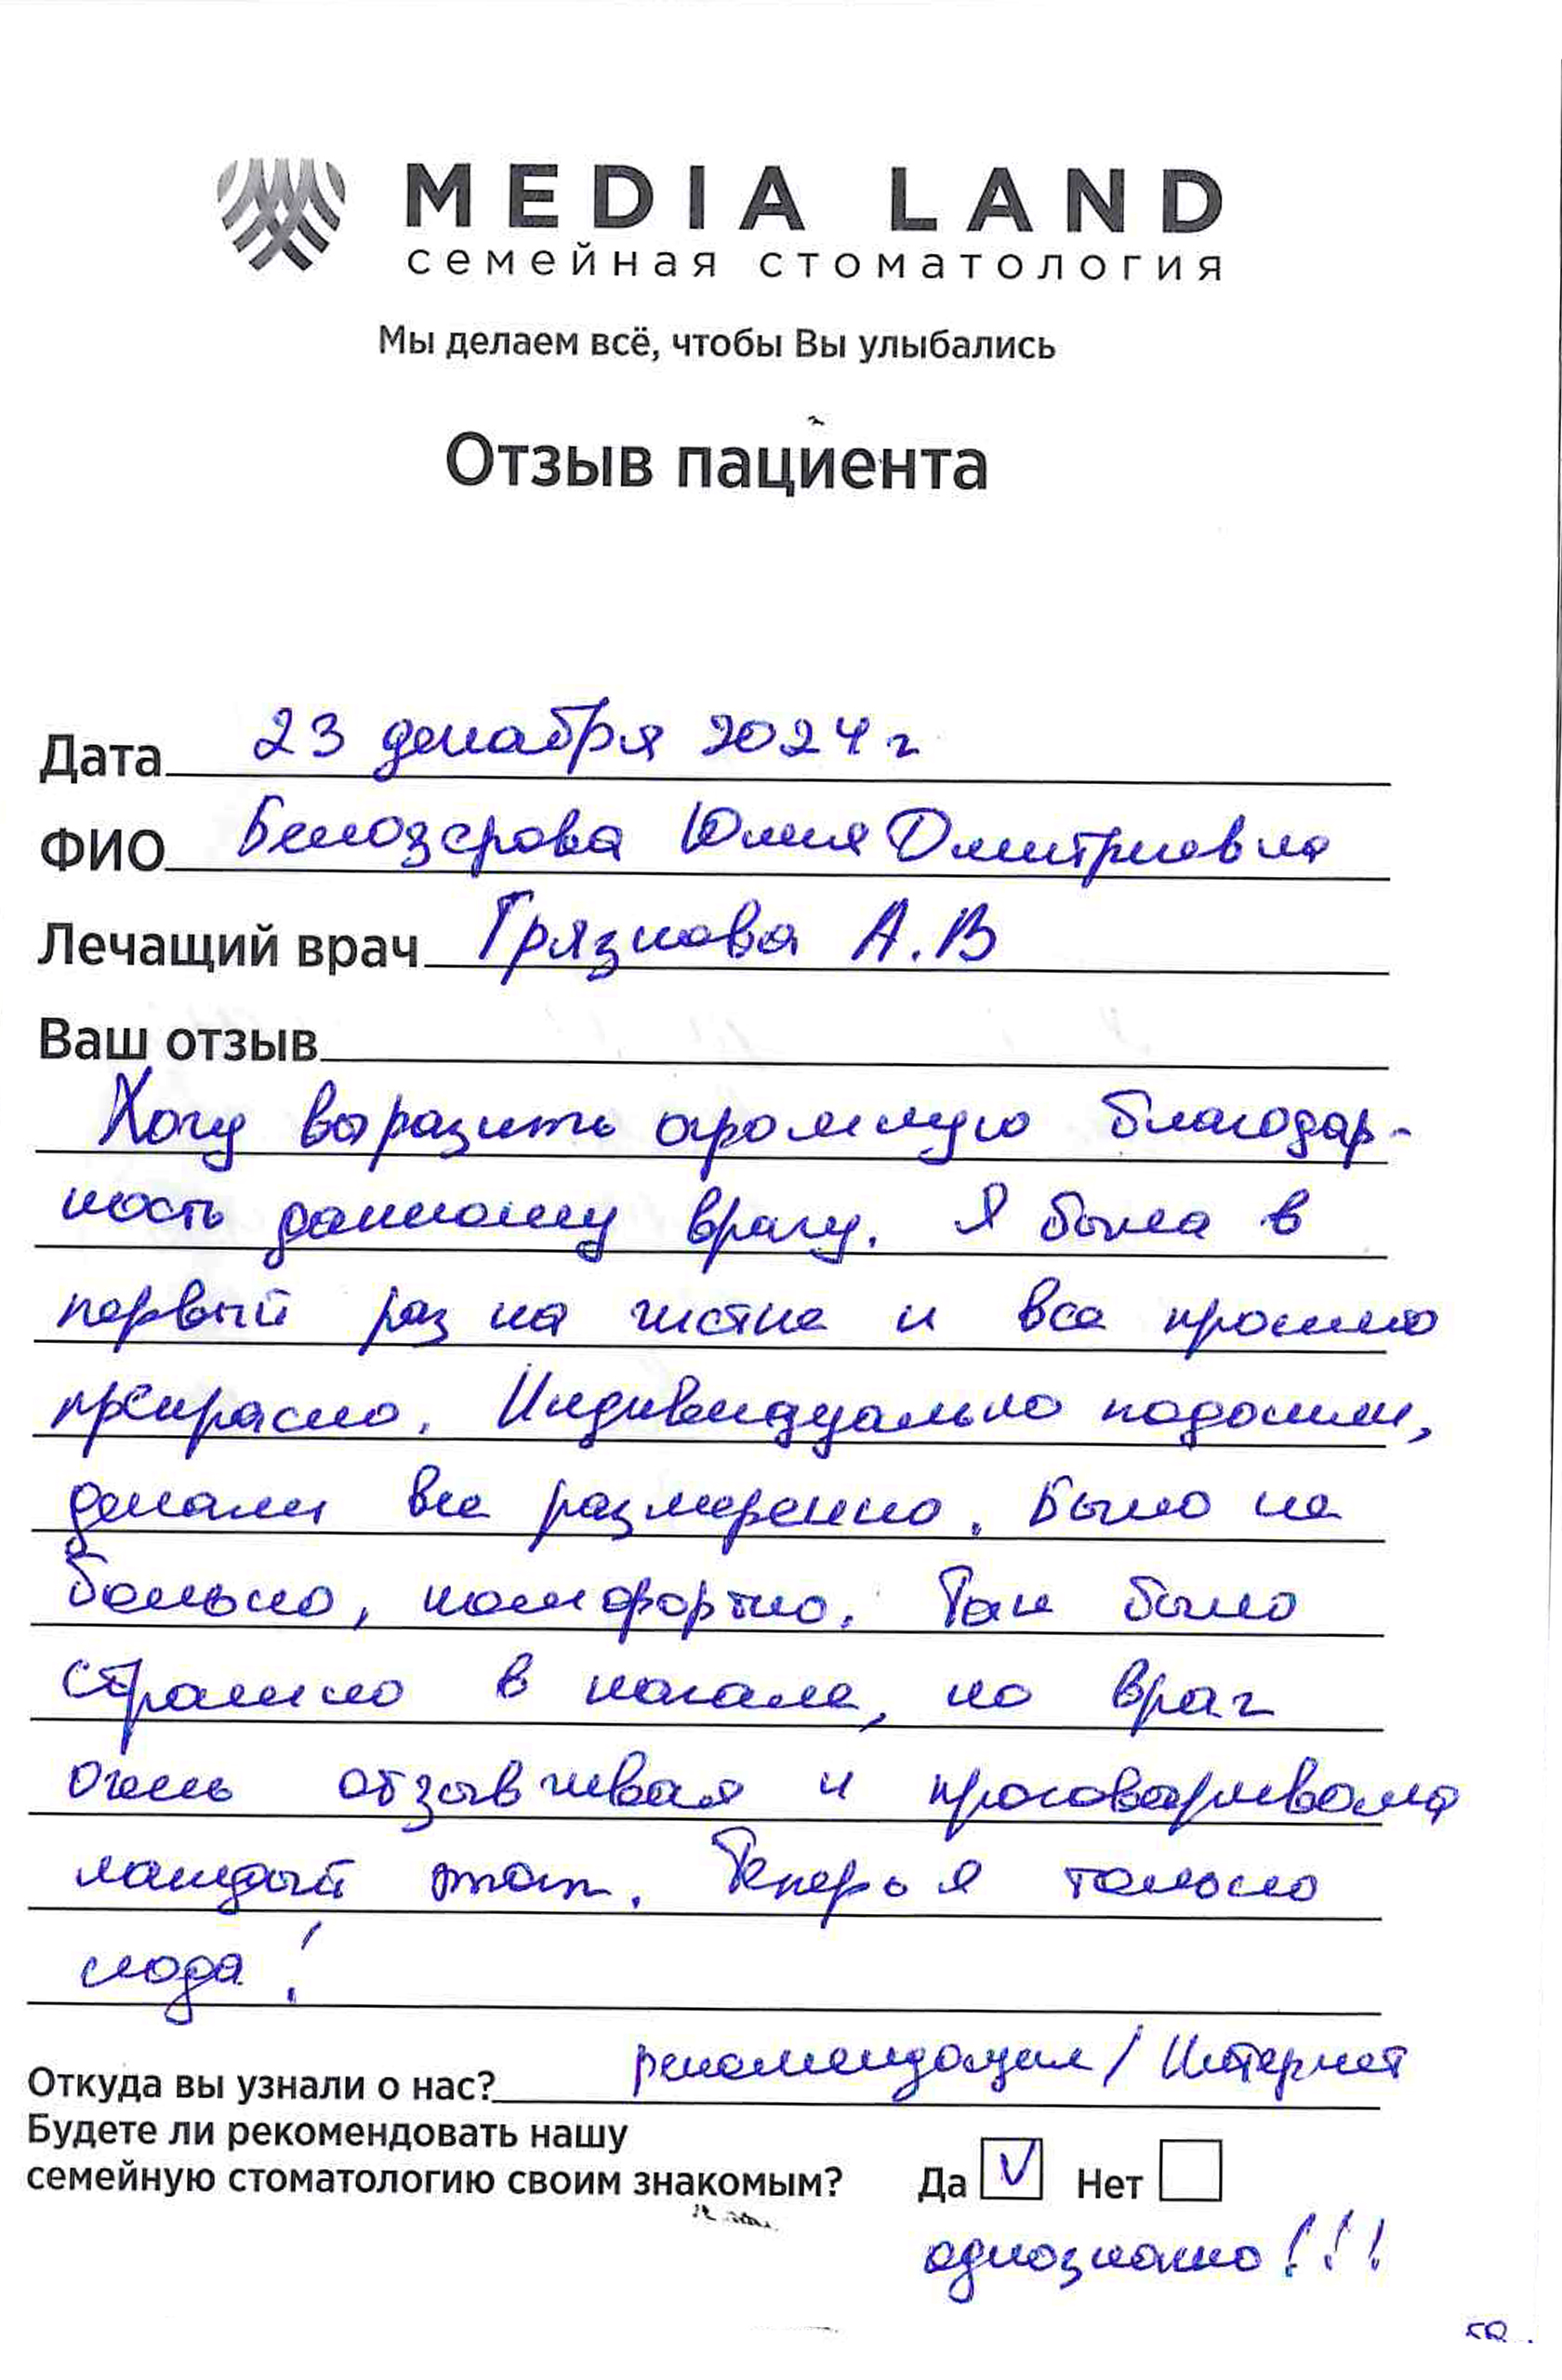 MEDIA LAND
семейная стоматология
Мы делаем всё, чтобы Вы улыбались
Отзыв пациента
Дата 23 декабря 2024 г
ФИО Белозерова Юлия Дмитриевна
Лечащий врач Грязнова А.В
Ваш отзыв
Хочу выразить огромную благодар-
ность данному врачу. Я была в
первый раз на чистке и все прошло
прекрасно. Индивидуально подошли,
делали все размеренно. Было не
больно, комфортно. Так было
страшно в начале, но врач
очень отзывчивая и проговаривала
каждый этап. Теперь я только
сюда!
Откуда вы узнали о нас? рекомендация / Интернет
Будете ли рекомендовать нашу
семейную стоматологию своим знакомым? Да V Нет
однозначно!!!